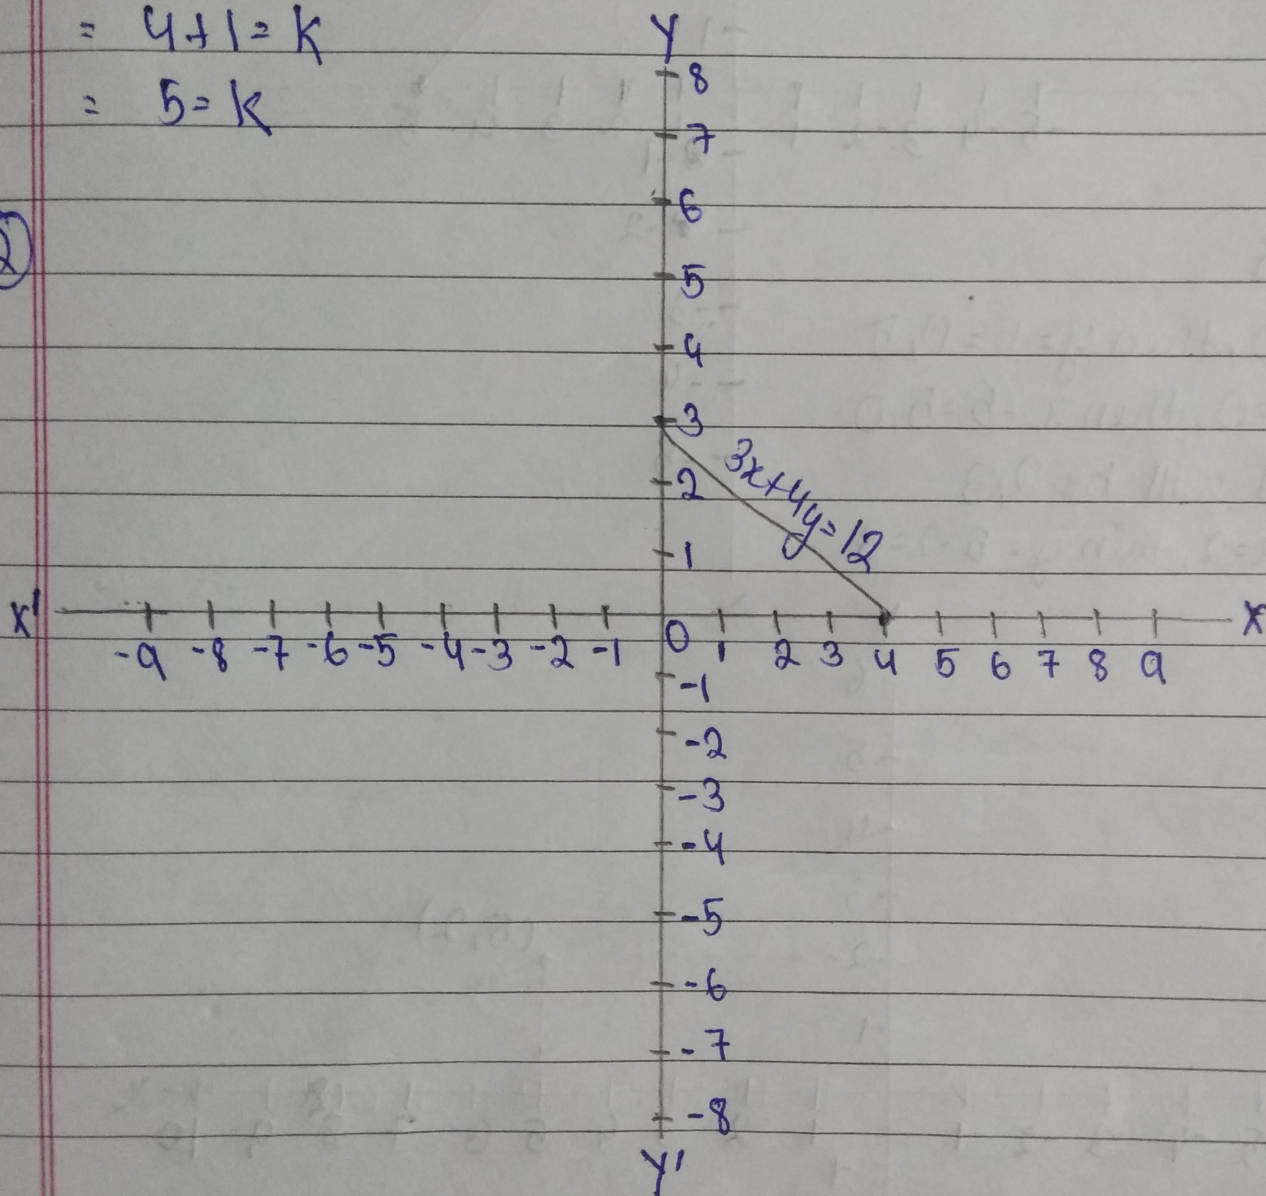 = 4+1=K
= 5=K
2
Y
8
7
6
5
4
3
2
1
3x+4y=12
X' X
-9 -8 -7 -6 -5 -4 -3 -2 -1 0 1 2 3 4 5 6 7 8 9
-1
-2
-3
-4
-5
-6
-7
-8
Y'